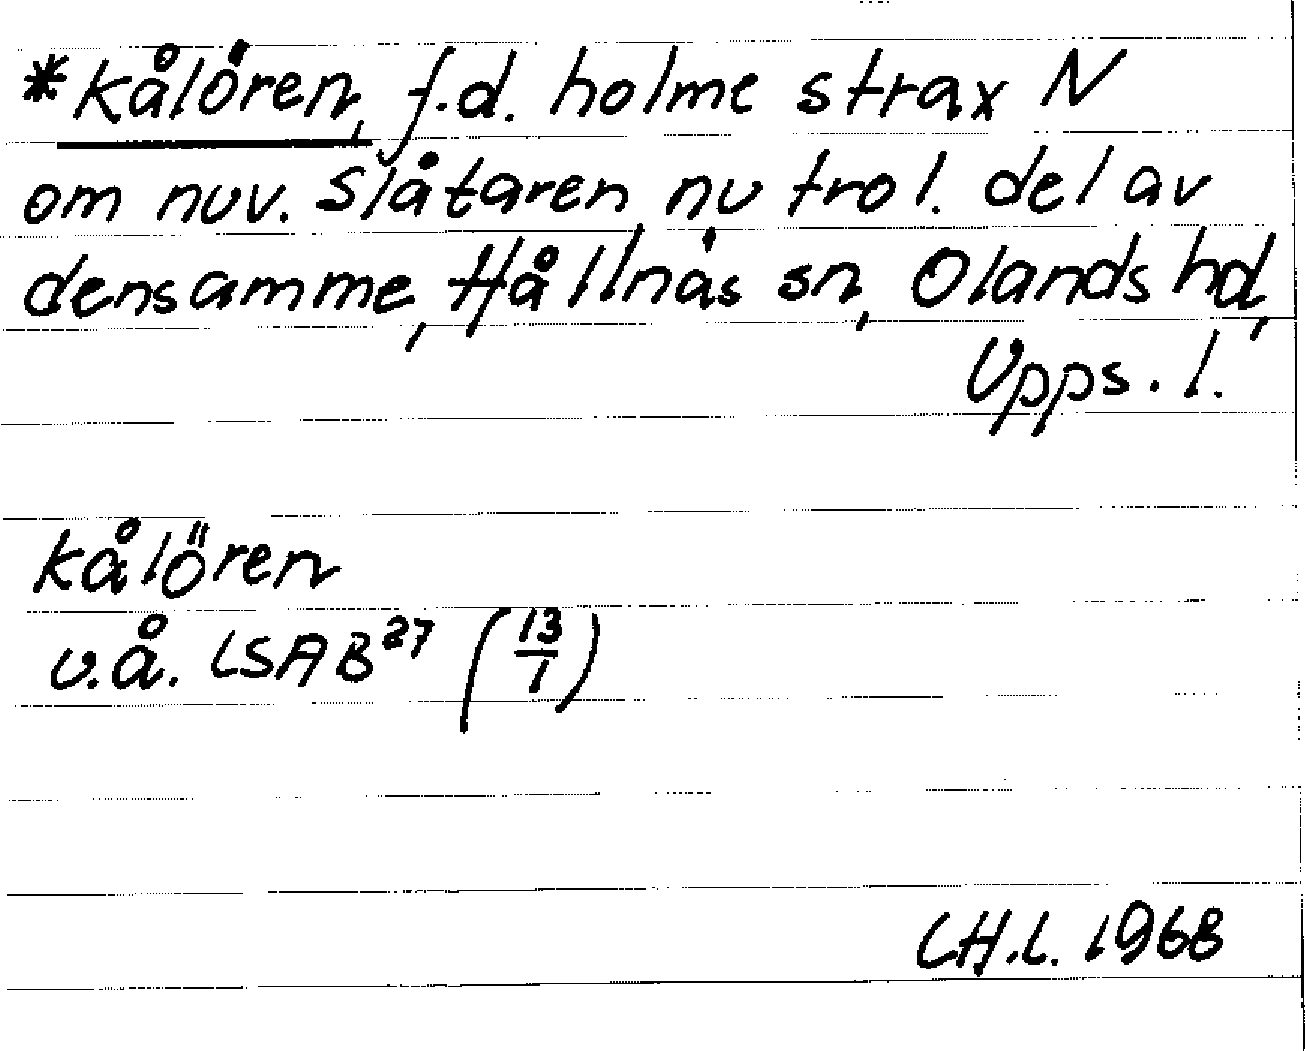 *Kålören, f.d. holme strax N
om nuv. Slåtaren nu trol. del av
densamme, Hållnäs sn, Olands hd,
Upps. l.
Kålören
u.å. LSA B27 (13/1)
CH.L. 1968